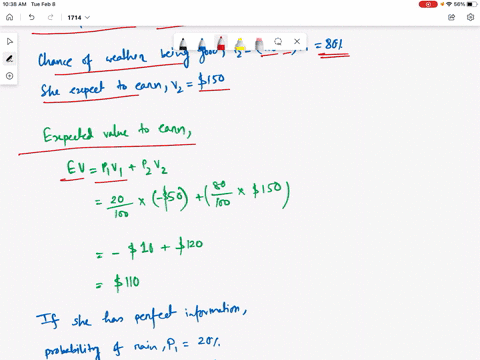 10:38 AM Tue Feb 8
56%
1714
Chance of weather being good, = 80%
She expect to earn, V₂ = $150
Expected value to earn,
EV = P₁V₁ + P₂V₂
= 20/100 × (-$50) + (80/100 × $150)
= - $10 + $120
= $110
If she has perfect information,
probability of rain, P₁ = 20%